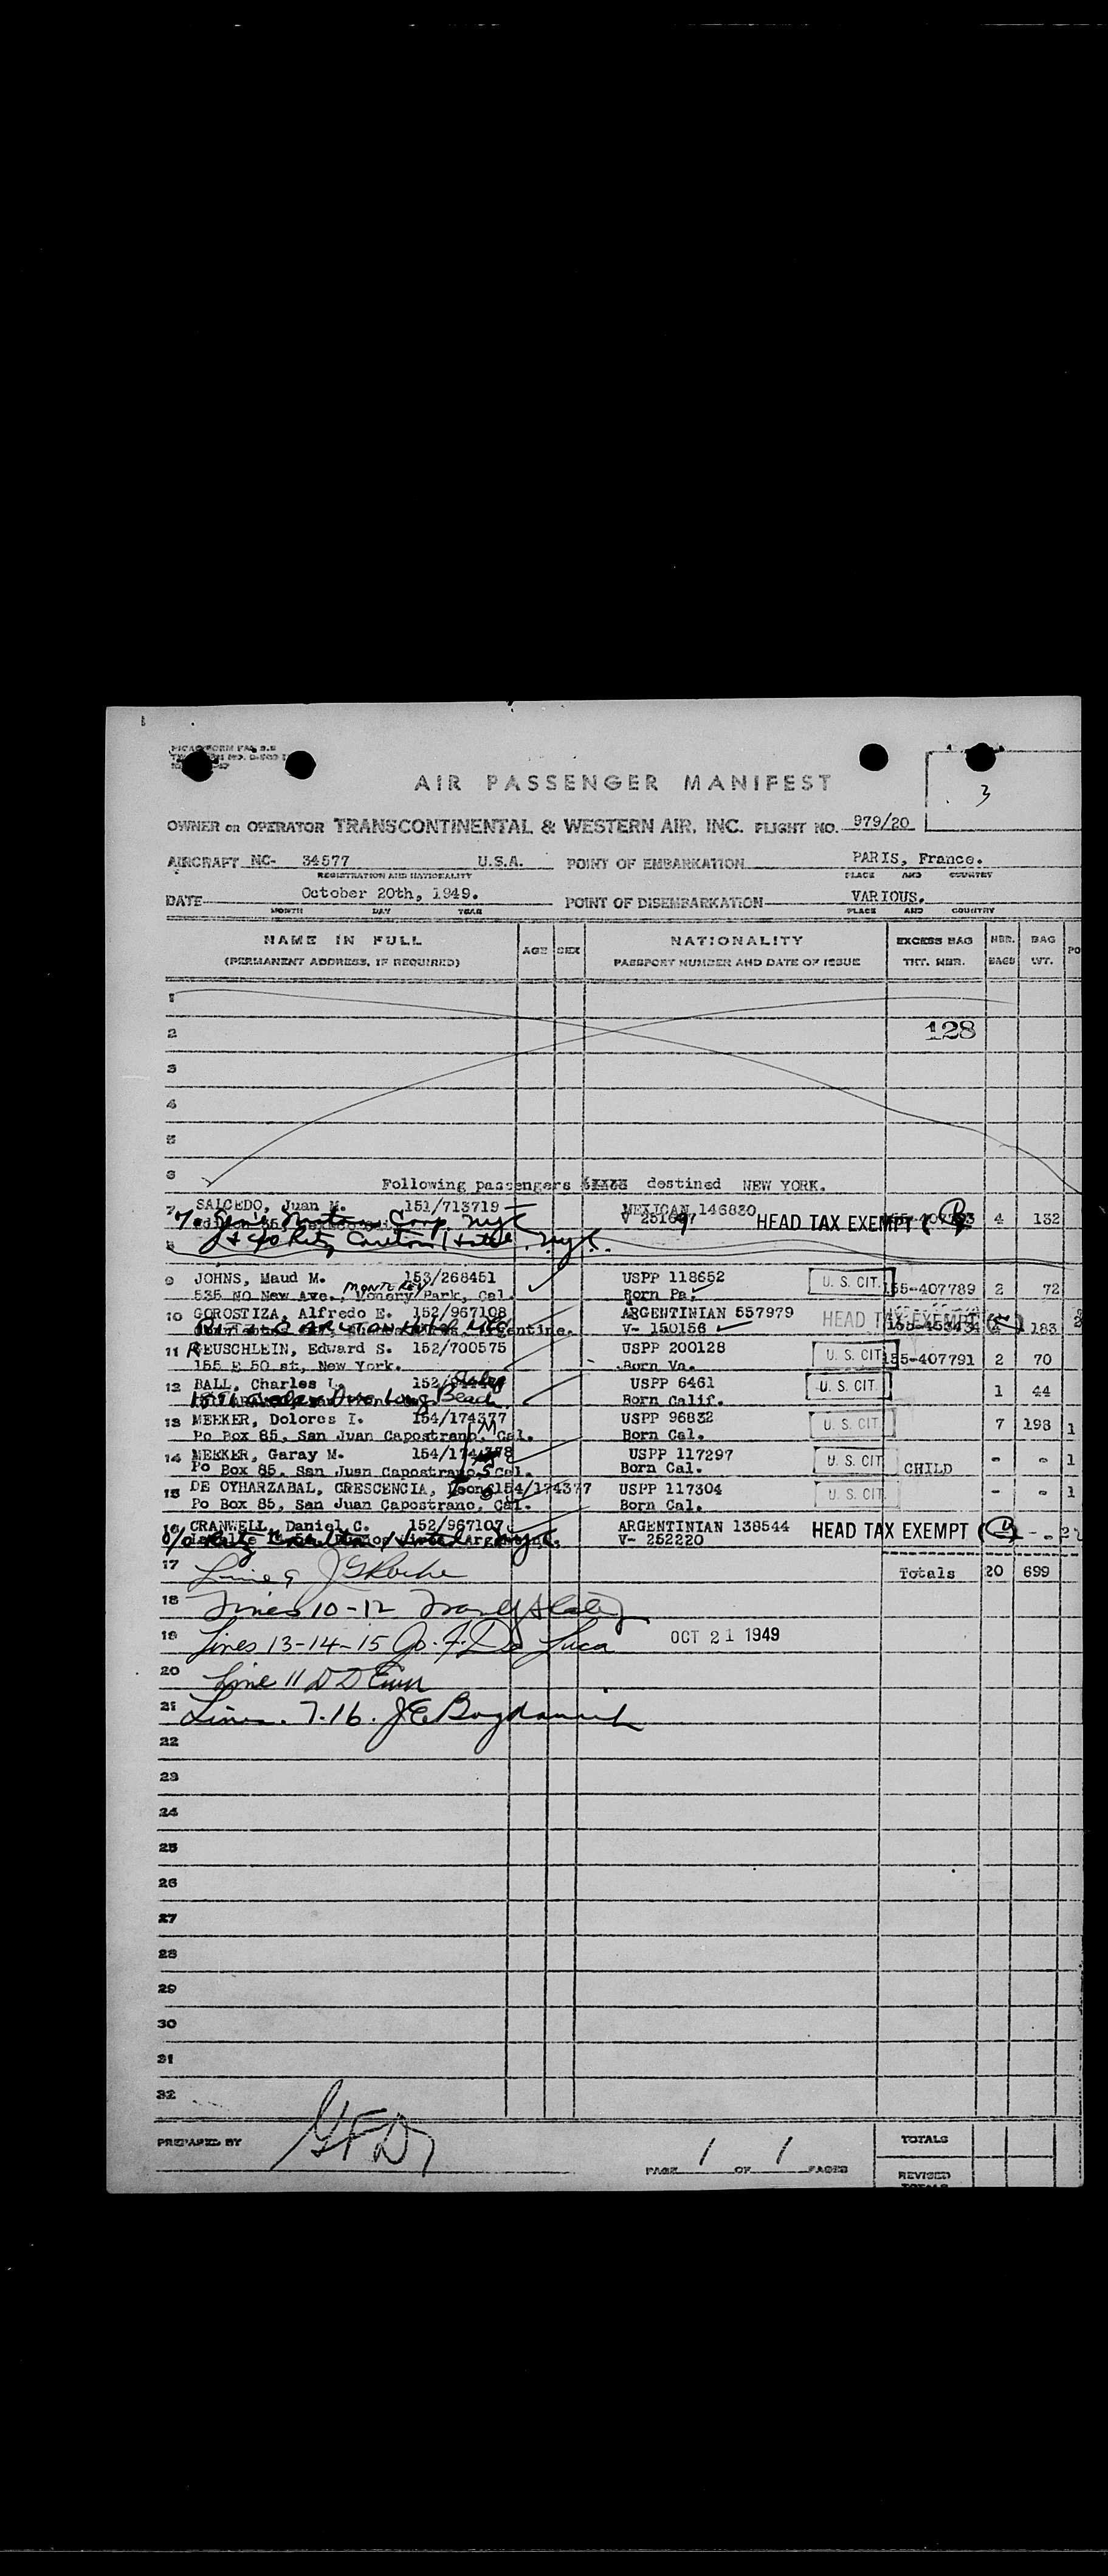 3
AIR PASSENGER MANIFEST
OWNER OR OPERATOR TRANSCONTINENTAL & WESTERN AIR, INC. FLIGHT NO. 979/20
AIRCRAFT NC- 34577 U.S.A. POINT OF EMBARKATION PARIS, France.
REGISTRATION AND NATIONALITY PLACE AND COUNTRY
DATE October 20th, 1949. POINT OF DISEMBARKATION VARIOUS.
MONTH DAY YEAR PLACE AND COUNTRY
NAME IN FULL AGE SEX NATIONALITY EXCESS BAG NBR. BAG PO
(PERMANENT ADDRESS, IF REQUIRED) PASSPORT NUMBER AND DATE OF ISSUE TKT. NBR. BAGS WT.
1
2 128
3
4
5
6
Following passengers destined NEW YORK.
7 SALCEDO, Juan M. 151/713719 MEXICAN 146830
% Gen'l Motors Corp. nyc HEAD TAX EXEMPT 4 132
8 Ritz Carlton Hotel. nyc.
9 JOHNS, Maud M. 153/268451 USPP 118652 U. S. CIT. 155-407789 2 72
535 NO New Ave., MONTEREY Park, Cal. Born Pa.
10 GOROSTIZA, Alfredo E. 152/967108 ARGENTINIAN 557979 HEAD TAX EXEMPT 183
RITZ CARLTON HOTEL NYC Argentine. V- 150156
11 REUSCHLEIN, Edward S. 152/700575 USPP 200128 U. S. CIT 155-407791 2 70
155 E 50 st, New York. Born Va.
12 BALL, Charles L. USPP 6461 U. S. CIT. 1 44
Long Beach Born Calif.
13 MEEKER, Dolores I. 154/174377 USPP 96832 U. S. CIT. 7 198 1
Po Box 85, San Juan Capostrano, Cal. Born Cal.
14 MEEKER, Garay M. USPP 117297 U. S. CIT CHILD - - 1
Po Box 85, San Juan Capostrano, Cal. Born Cal.
15 DE OYHARZABAL, CRESCENCIA, 154/174377 USPP 117304 U. S. CIT. - - 1
Po Box 85, San Juan Capostrano, Cal. Born Cal.
16 CRANWELL, Daniel C. 152/967107 ARGENTINIAN 138544 HEAD TAX EXEMPT - -
V- 252220
17 Line 9 Totals 20 699
18 Lines 10-12
19 Lines 13-14-15 De Luca OCT 21 1949
20 Line 11
21 Lines. 7-16.
22
23
24
25
26
27
28
29
30
31
32
PREPARED BY TOTALS
PAGE 1 OF 1 PAGES
REVISED
TOTALS